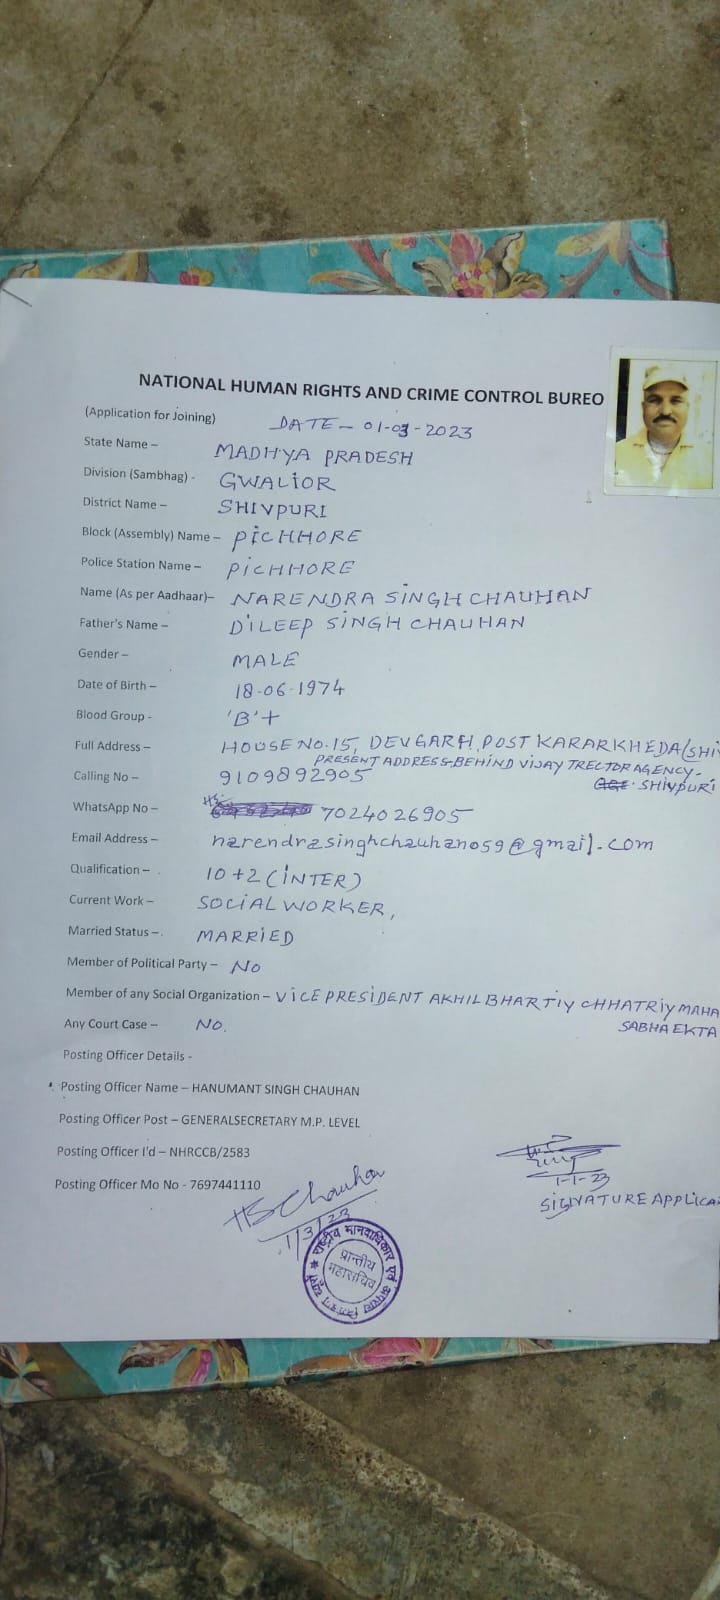 NATIONAL HUMAN RIGHTS AND CRIME CONTROL BUREO
(Application for Joining) DATE - 01-03-2023
State Name – MADHYA PRADESH
Division (Sambhag) - GWALIOR
District Name – SHIVPURI
Block (Assembly) Name – PICHHORE
Police Station Name – PICHHORE
Name (As per Aadhaar)– NARENDRA SINGH CHAUHAN
Father's Name – DILEEP SINGH CHAUHAN
Gender – MALE
Date of Birth – 18-06-1974
Blood Group - 'B'+
Full Address – HOUSE NO. 15, DEVGARH, POST KARARKHEDA (SHI
PRESENT ADDRESS-BEHIND VIJAY TRECTOR AGENCY-
SHIVPURI
Calling No – 9109892905
WhatsApp No – 7024026905
Email Address – narendrasinghchauhan059@gmail.com
Qualification – 10+2 (INTER)
Current Work – SOCIAL WORKER,
Married Status – MARRIED
Member of Political Party – NO
Member of any Social Organization – VICE PRESIDENT AKHIL BHARTIY CHHATRIY MAHA
SABHA EKTA
Any Court Case – NO.
Posting Officer Details -
Posting Officer Name – HANUMANT SINGH CHAUHAN
Posting Officer Post – GENERALSECRETARY M.P. LEVEL
Posting Officer I'd – NHRCCB/2583
Posting Officer Mo No - 7697441110
HSChauhan
1/3/23
1-1-23
SIGNATURE APPLICA
राष्ट्रीय मानवाधिकार एवं अपराध नियंत्रण ब्यूरो
प्रान्तीय
महासचिव